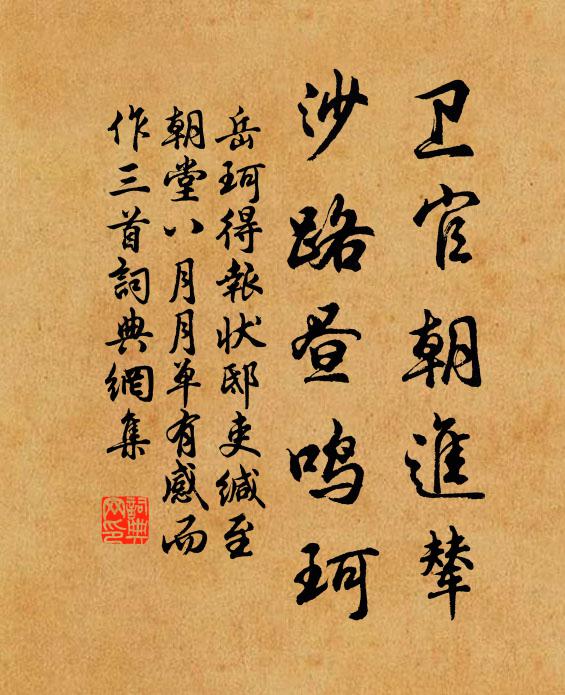 卫官朝進辇
沙路昼鳴珂
岳珂得報状邸吏缄至
朝堂八月月单有感而
作三首詞典網集
詞典網印